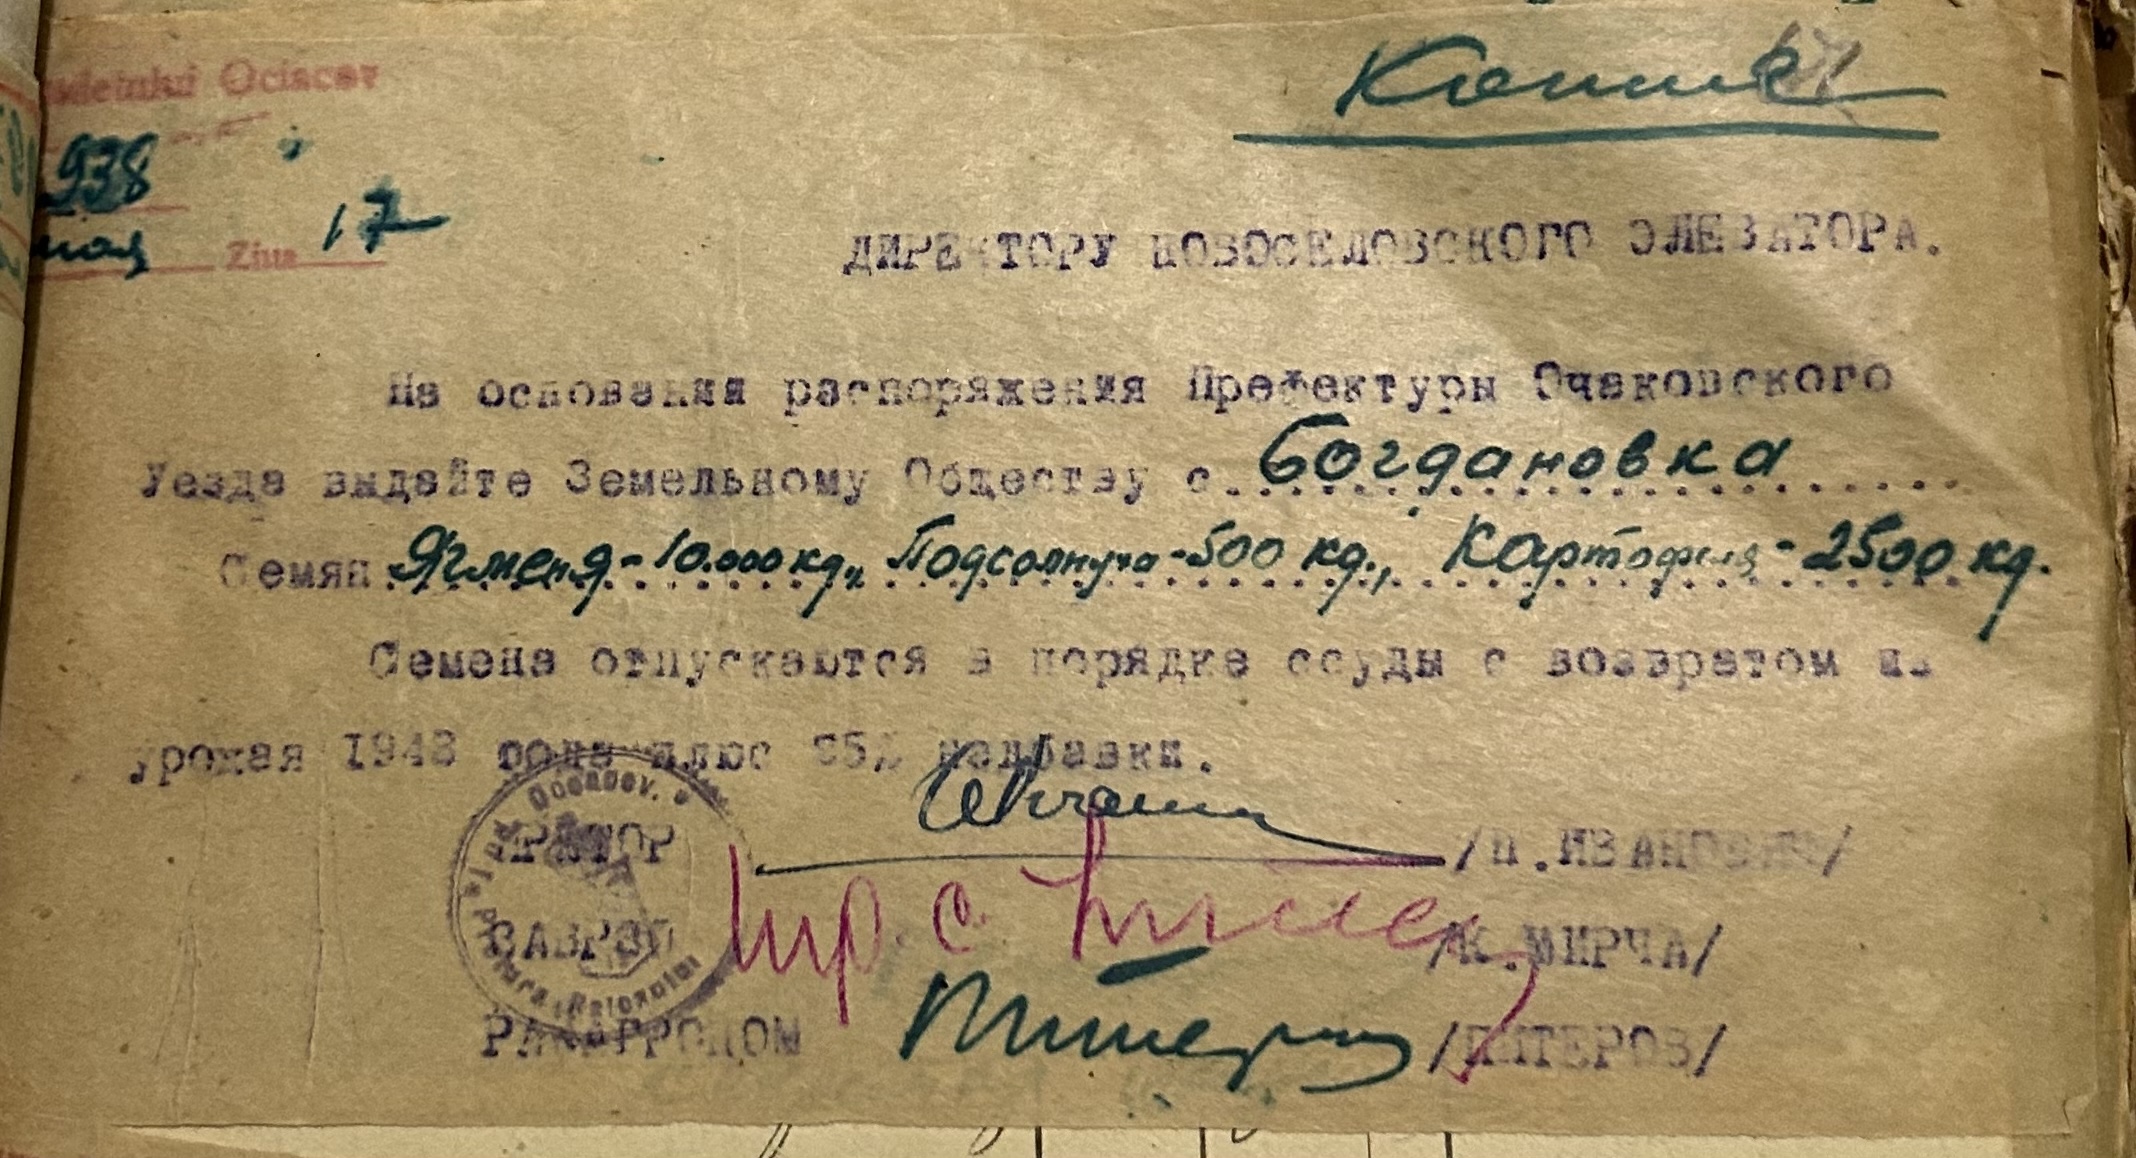 Копия
Ociacov
938
мая Ziua 17
ДИРЕКТОРУ НОВОСЕЛОВСКОГО ЭЛЕВАТОРА.
На основании распоряжения Префектуры Очаковского
Уезда выдайте Земельному Обществу с. Богдановка
Семян Ячменя - 10.000 кг., Подсолнуха - 500 кг., Картофеля - 2500 кг.
Семена отпускаются в порядке ссуды с возвратом из
урожая 1943 года плюс 25% надбавки.
ПРЕТОР /П.ИВАНОВИЧ/
/К.МИРЧА/
/ПИТЕРОВ/